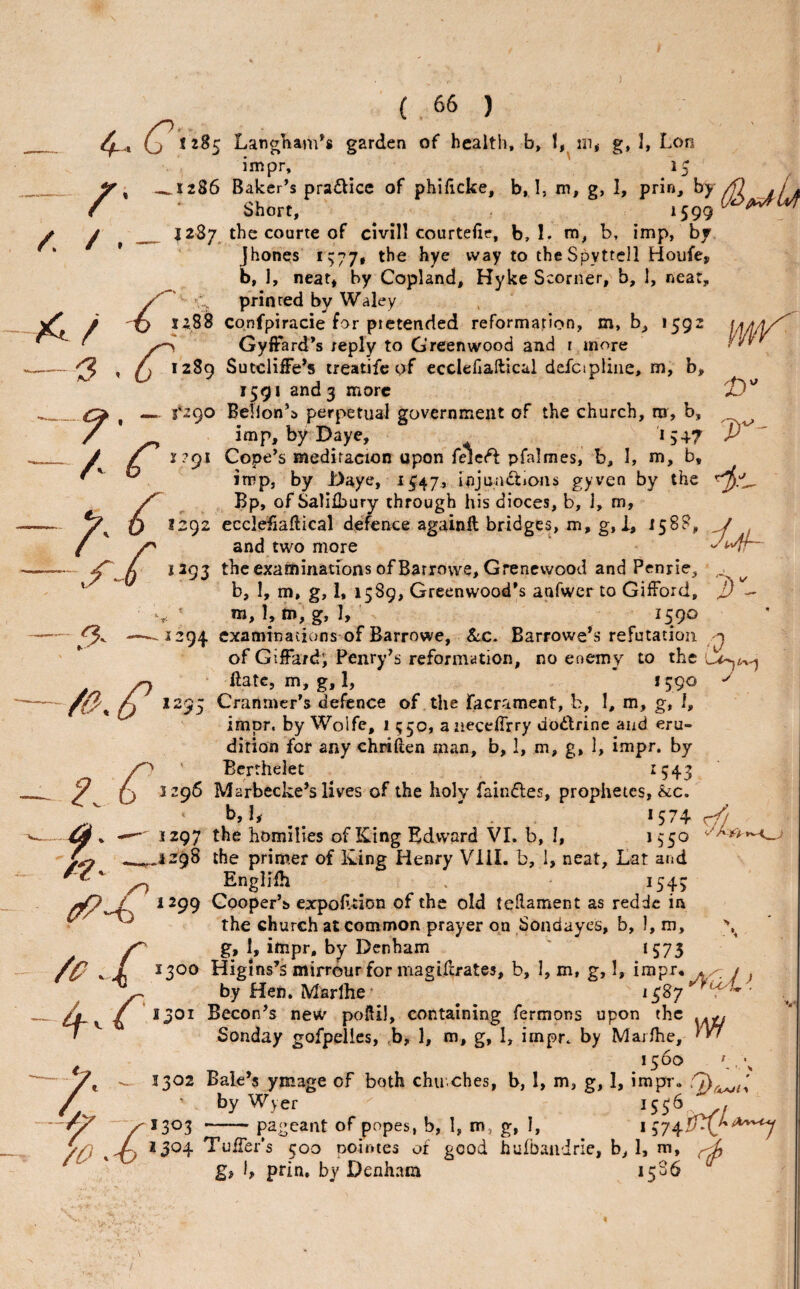 ( 66 )
4. 6 1285 Langham's garden of health, b, l, m, g, l, Lon
impr, 15
7. 1286 Baker's practice of phisicke, b, l, m, g, l, prin, by
Short, 1599
1. 1. 1287 the courte of civill courtesie, b, l. m, b, imp, by
Jhones 1577, the hye way to the Spyttell House,
b, l, neat, by Copland, Hyke Scorner, b, l, neat,
printed by Waley
1 6 1288 conspiracie for pretended reformation, m, b, 1592
Gyffard's reply to Greenwood and 1 more
3. 6 1289 Sutcliffe's treatise of ecclesiastical descipline, m, b,
1591 and 3 more
9. — 1290 Bellon's perpetual government of the church, m, b,
imp, by Daye, 1547
1. 6 1291 Cope's meditacion upon select psalmes, b, l, m, b,
imp, by Daye, 1547, injunctions gyven by the
Bp, of Salisbury through his dioces, b, l, m,
7. 6 1292 ecclesiastical defence against bridges, m, g, l, 1588,
and two more
5. 6 1293 the examinations of Barrowe, Grenewood and Penrie,
b, l, m, g, l, 1589, Greenwood's answer to Gifford,
m, l, m, g, l, 1590
3. — 1294 examinations of Barrowe, &c. Barrowe's refutation
of Giffard; Penry's reformation, no enemy to the
state, m, g, l, 1590
10. 6 1295 Cranmer's defence of the sacrament, b, l, m, g, l,
impr. by Wolfe, 1550, a necessrry doctrine and eru-
dition for any christen man, b, l, m, g, l, impr. by
Berthelet 1543
2. 6 1296 Marbecke's lives of the holy sainctes, prophetes, &c.
b, l, 1574
9. — 1297 the homilies of King Edward VI. b, l, 1550
12. — 1298 the primer of King Henry VIII. b, l, neat, Lat and
English 1545
6 1299 Cooper's exposition of the old testament as redde in
the church at common prayer on Sondayes, b, l, m,
g, l, impr, by Denham 1573
10. 6 1300 Higins's mirrour for magistrates, b, l, m, g, l, impr.
by Hen. Marshe 1587
4. 6 1301 Becon's new postil, containing sermons upon the
Sonday gospelles, b, l, m, g, l, impr. by Marshe,
1560
7. — 1302 Bale's ymage of both churches, b, l, m, g, l, impr.
by Wyer 1556
1303 —— pageant of popes, b, l, m, g, l, 1574
10. 6 1304 Tusser's 500 pointes of good husbandrie, b, l, m,
g, l, prin. by Denham 1586